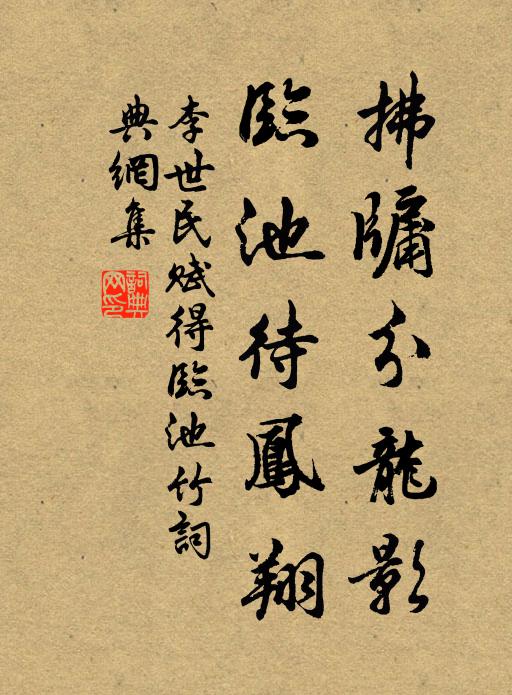 拂牖分龍影
臨池待鳳翔
李世民賦得臨池竹詞
典網集
詞典
网印